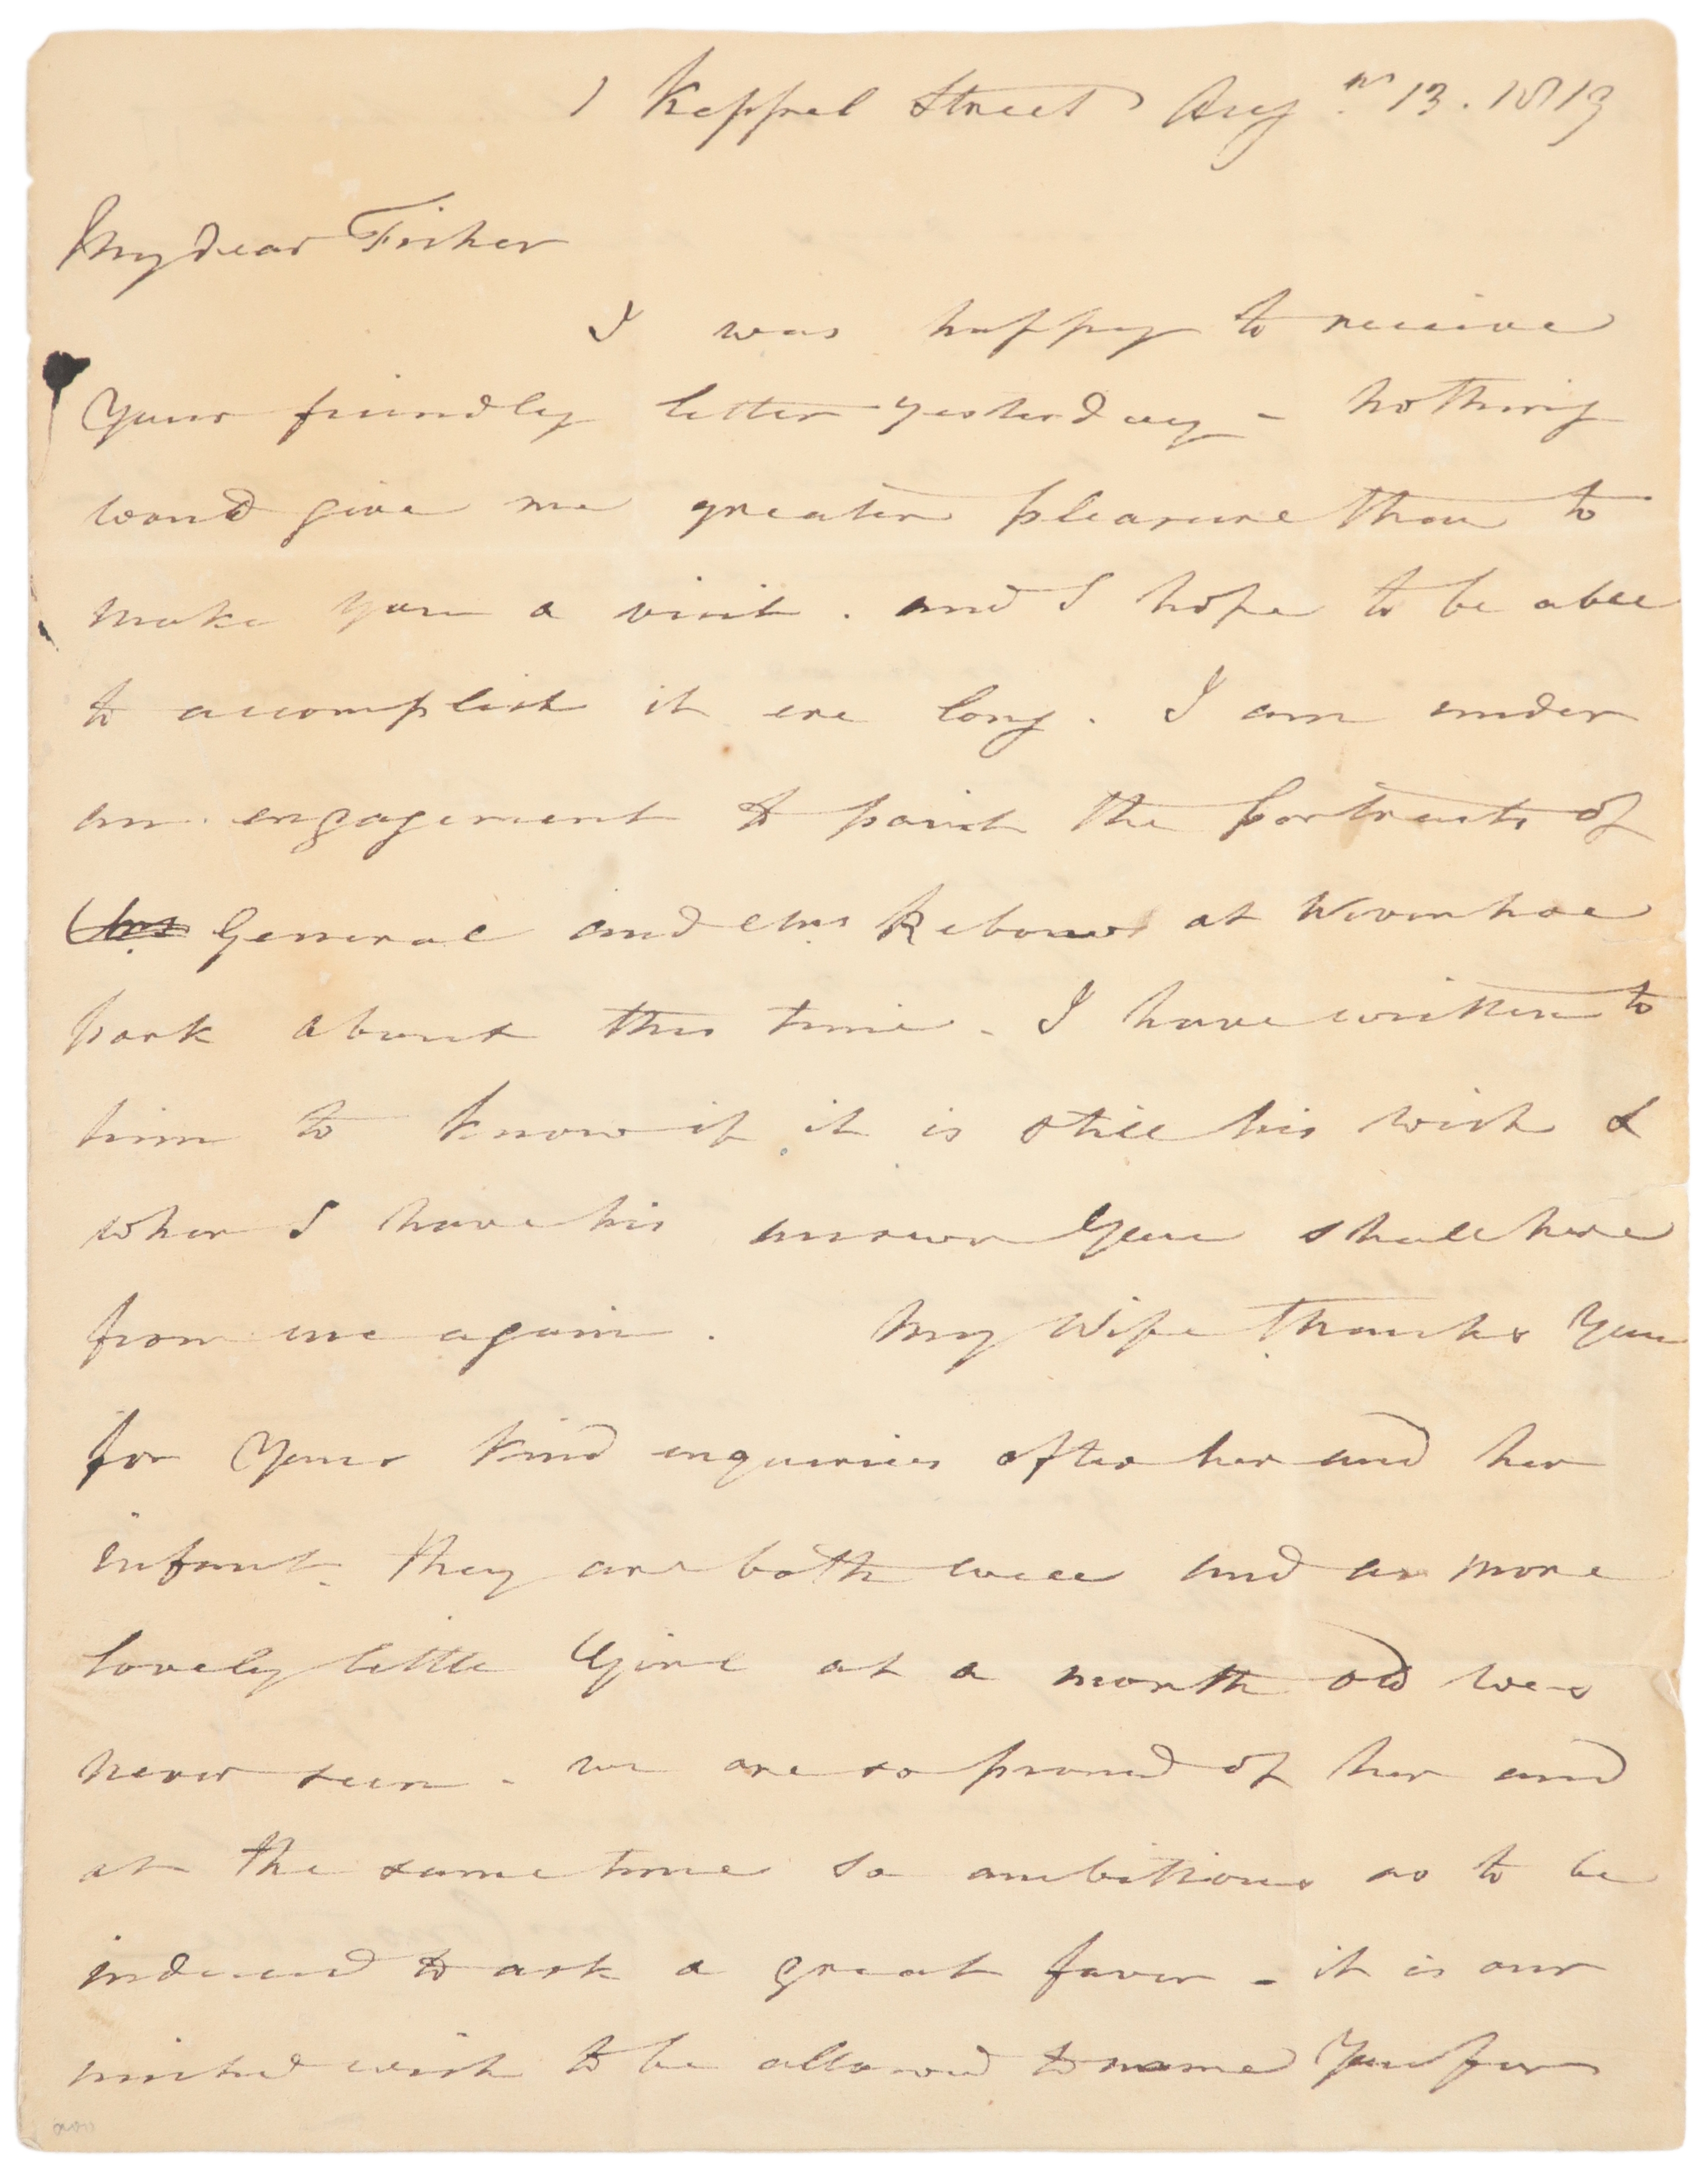 1 Keppel Street Aug.st 13. 1819
My dear Fisher
I was happy to receive
Your friendly letter yesterday - nothing
would give me greater pleasure than to
make you a visit. and I hope to be able
to accomplish it ere long. I am under
an engagement to paint the portraits of
Mrs General and Mrs Rebow at Wivenhoe
park about this time - I have written to
him to know if it is still his wish &
when I have his answer You shall here
from me again. My Wife thanks You
for Your kind enquiries after her and her
infant. they are both well and a more
lovely little Girl at a month old was
never seen - we are so proud of her and
at the same time so ambitious as to be
induced to ask a great favor - it is our
united wish to be allowed to name You for